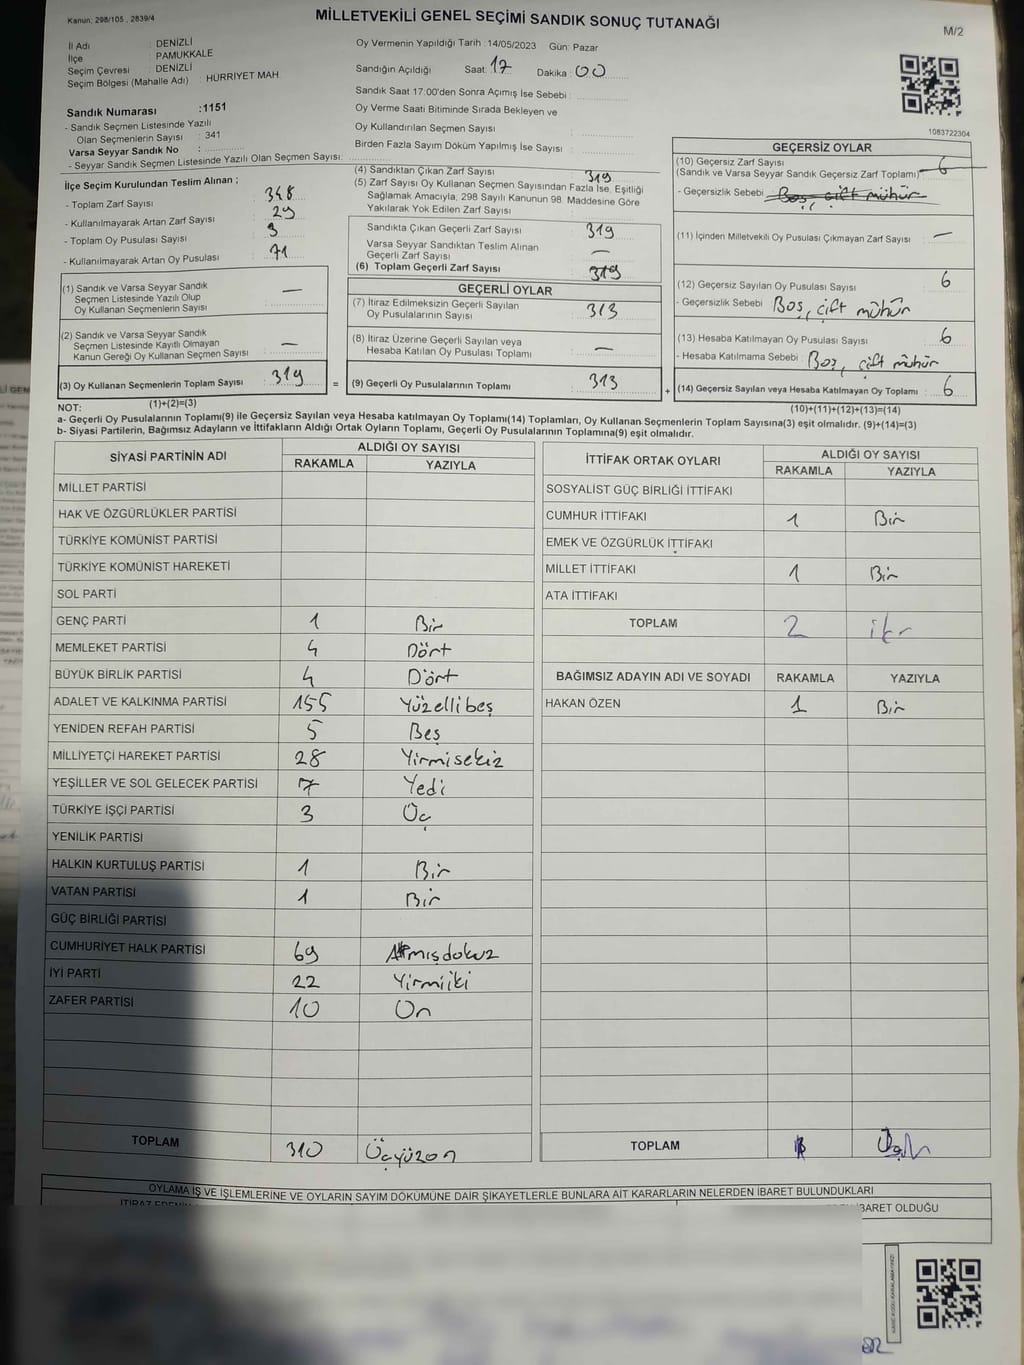 Kanun: 298/105 , 2839/4
MİLLETVEKİLİ GENEL SEÇİMİ SANDIK SONUÇ TUTANAĞI
M/2
İl Adı : DENİZLİ
İlçe : PAMUKKALE
Seçim Çevresi : DENİZLİ
Seçim Bölgesi (Mahalle Adı) : HÜRRİYET MAH.
Oy Vermenin Yapıldığı Tarih :14/05/2023 Gün: Pazar
Sandığın Açıldığı Saat: 17 Dakika : 00
Sandık Saat 17.00'den Sonra Açımış İse Sebebi :
Oy Verme Saati Bitiminde Sırada Bekleyen ve
Oy Kullandırılan Seçmen Sayısı :
Birden Fazla Sayım Döküm Yapılmış İse Sayısı :
1083722304
Sandık Numarası :1151
- Sandık Seçmen Listesinde Yazılı
Olan Seçmenlerin Sayısı : 341
Varsa Seyyar Sandık No :
- Seyyar Sandık Seçmen Listesinde Yazılı Olan Seçmen Sayısı:
İlçe Seçim Kurulundan Teslim Alınan ;
- Toplam Zarf Sayısı : 348
- Kullanılmayarak Artan Zarf Sayısı : 29
- Toplam Oy Pusulası Sayısı :
- Kullanılmayarak Artan Oy Pusulası : 71
(1) Sandık ve Varsa Seyyar Sandık
Seçmen Listesinde Yazılı Olup
Oy Kullanan Seçmenlerin Sayısı : —
(2) Sandık ve Varsa Seyyar Sandık
Seçmen Listesinde Kayıtlı Olmayan
Kanun Gereği Oy Kullanan Seçmen Sayısı : —
(3) Oy Kullanan Seçmenlerin Toplam Sayısı : 319
(1)+(2)=(3)
(4) Sandıktan Çıkan Zarf Sayısı : 319
(5) Zarf Sayısı Oy Kullanan Seçmen Sayısından Fazla İse, Eşitliği
Sağlamak Amacıyla, 298 Sayılı Kanunun 98. Maddesine Göre
Yakılarak Yok Edilen Zarf Sayısı :
Sandıkta Çıkan Geçerli Zarf Sayısı : 319
Varsa Seyyar Sandıktan Teslim Alınan
Geçerli Zarf Sayısı : —
(6) Toplam Geçerli Zarf Sayısı : 319
GEÇERLİ OYLAR
(7) İtiraz Edilmeksizin Geçerli Sayılan
Oy Pusulalarının Sayısı : 313
(8) İtiraz Üzerine Geçerli Sayılan veya
Hesaba Katılan Oy Pusulası Toplamı : —
= (9) Geçerli Oy Pusulalarının Toplamı : 313
GEÇERSİZ OYLAR
(10) Geçersiz Zarf Sayısı
(Sandık ve Varsa Seyyar Sandık Geçersiz Zarf Toplamı) : 6
- Geçersizlik Sebebi : Boş, çift mühür
(11) İçinden Milletvekili Oy Pusulası Çıkmayan Zarf Sayısı : —
(12) Geçersiz Sayılan Oy Pusulası Sayısı : 6
- Geçersizlik Sebebi : Boş, çift mühür
(13) Hesaba Katılmayan Oy Pusulası Sayısı : 6
- Hesaba Katılmama Sebebi : Boş, çift mühür
+ (14) Geçersiz Sayılan veya Hesaba Katılmayan Oy Toplamı : 6
(10)+(11)+(12)+(13)=(14)
NOT:
a- Geçerli Oy Pusulalarının Toplamı(9) ile Geçersiz Sayılan veya Hesaba katılmayan Oy Toplamı(14) Toplamları, Oy Kullanan Seçmenlerin Toplam Sayısına(3) eşit olmalıdır. (9)+(14)=(3)
b- Siyasi Partilerin, Bağımsız Adayların ve İttifakların Aldığı Ortak Oyların Toplamı, Geçerli Oy Pusulalarının Toplamına(9) eşit olmalıdır.
SİYASİ PARTİNİN ADI ALDIĞI OY SAYISI
RAKAMLA YAZIYLA
MİLLET PARTİSİ
HAK VE ÖZGÜRLÜKLER PARTİSİ
TÜRKİYE KOMÜNİST PARTİSİ
TÜRKİYE KOMÜNİST HAREKETİ
SOL PARTİ
GENÇ PARTİ 1 Bir
MEMLEKET PARTİSİ 4 Dört
BÜYÜK BİRLİK PARTİSİ 4 Dört
ADALET VE KALKINMA PARTİSİ 155 Yüzellibeş
YENİDEN REFAH PARTİSİ 5 Beş
MİLLİYETÇİ HAREKET PARTİSİ 28 Yirmisekiz
YEŞİLLER VE SOL GELECEK PARTİSİ 7 Yedi
TÜRKİYE İŞÇİ PARTİSİ 3 Üç
YENİLİK PARTİSİ
HALKIN KURTULUŞ PARTİSİ 1 Bir
VATAN PARTİSİ 1 Bir
GÜÇ BİRLİĞİ PARTİSİ
CUMHURİYET HALK PARTİSİ 69 Altmışdokuz
İYİ PARTİ 22 Yirmiiki
ZAFER PARTİSİ 10 On
TOPLAM 310 Üçyüzon
İTTİFAK ORTAK OYLARI ALDIĞI OY SAYISI
RAKAMLA YAZIYLA
SOSYALİST GÜÇ BİRLİĞİ İTTİFAKI
CUMHUR İTTİFAKI 1 Bir
EMEK VE ÖZGÜRLÜK İTTİFAKI
MİLLET İTTİFAKI 1 Bir
ATA İTTİFAKI
TOPLAM 2 iki
BAĞIMSIZ ADAYIN ADI VE SOYADI RAKAMLA YAZIYLA
HAKAN ÖZEN 1 Bir
TOPLAM
OYLAMA İŞ VE İŞLEMLERİNE VE OYLARIN SAYIM DÖKÜMÜNE DAİR ŞİKAYETLERLE BUNLARA AİT KARARLARIN NELERDEN İBARET BULUNDUKLARI
İBARET OLDUĞU